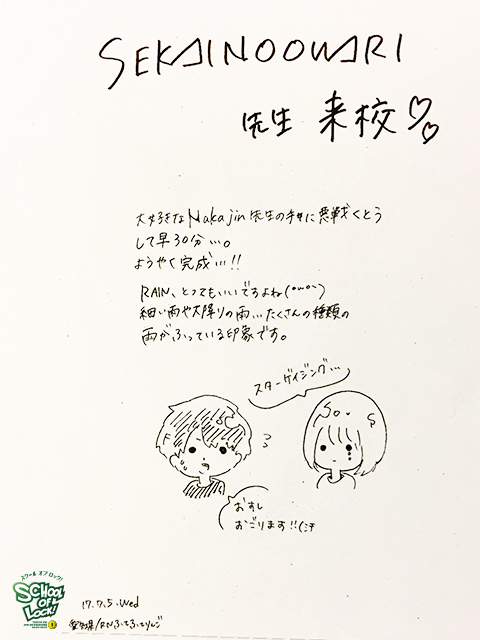 SEKAINOOWARI
先生 来校♡♡
大好きなNakajin先生の手紙に悪戦くとう
して早30分…。
ようやく完成…!!
RAIN、とってもいいですよね(・ω・、)
細い雨や大降りの雨…たくさんの種類の
雨がふっている印象です。
スターゲイジング…
So. S
F
おすし
おごります!!(汗
スクール オブ ロック!
SCHOOL
OF
LOCK!
17.7.5.Wed